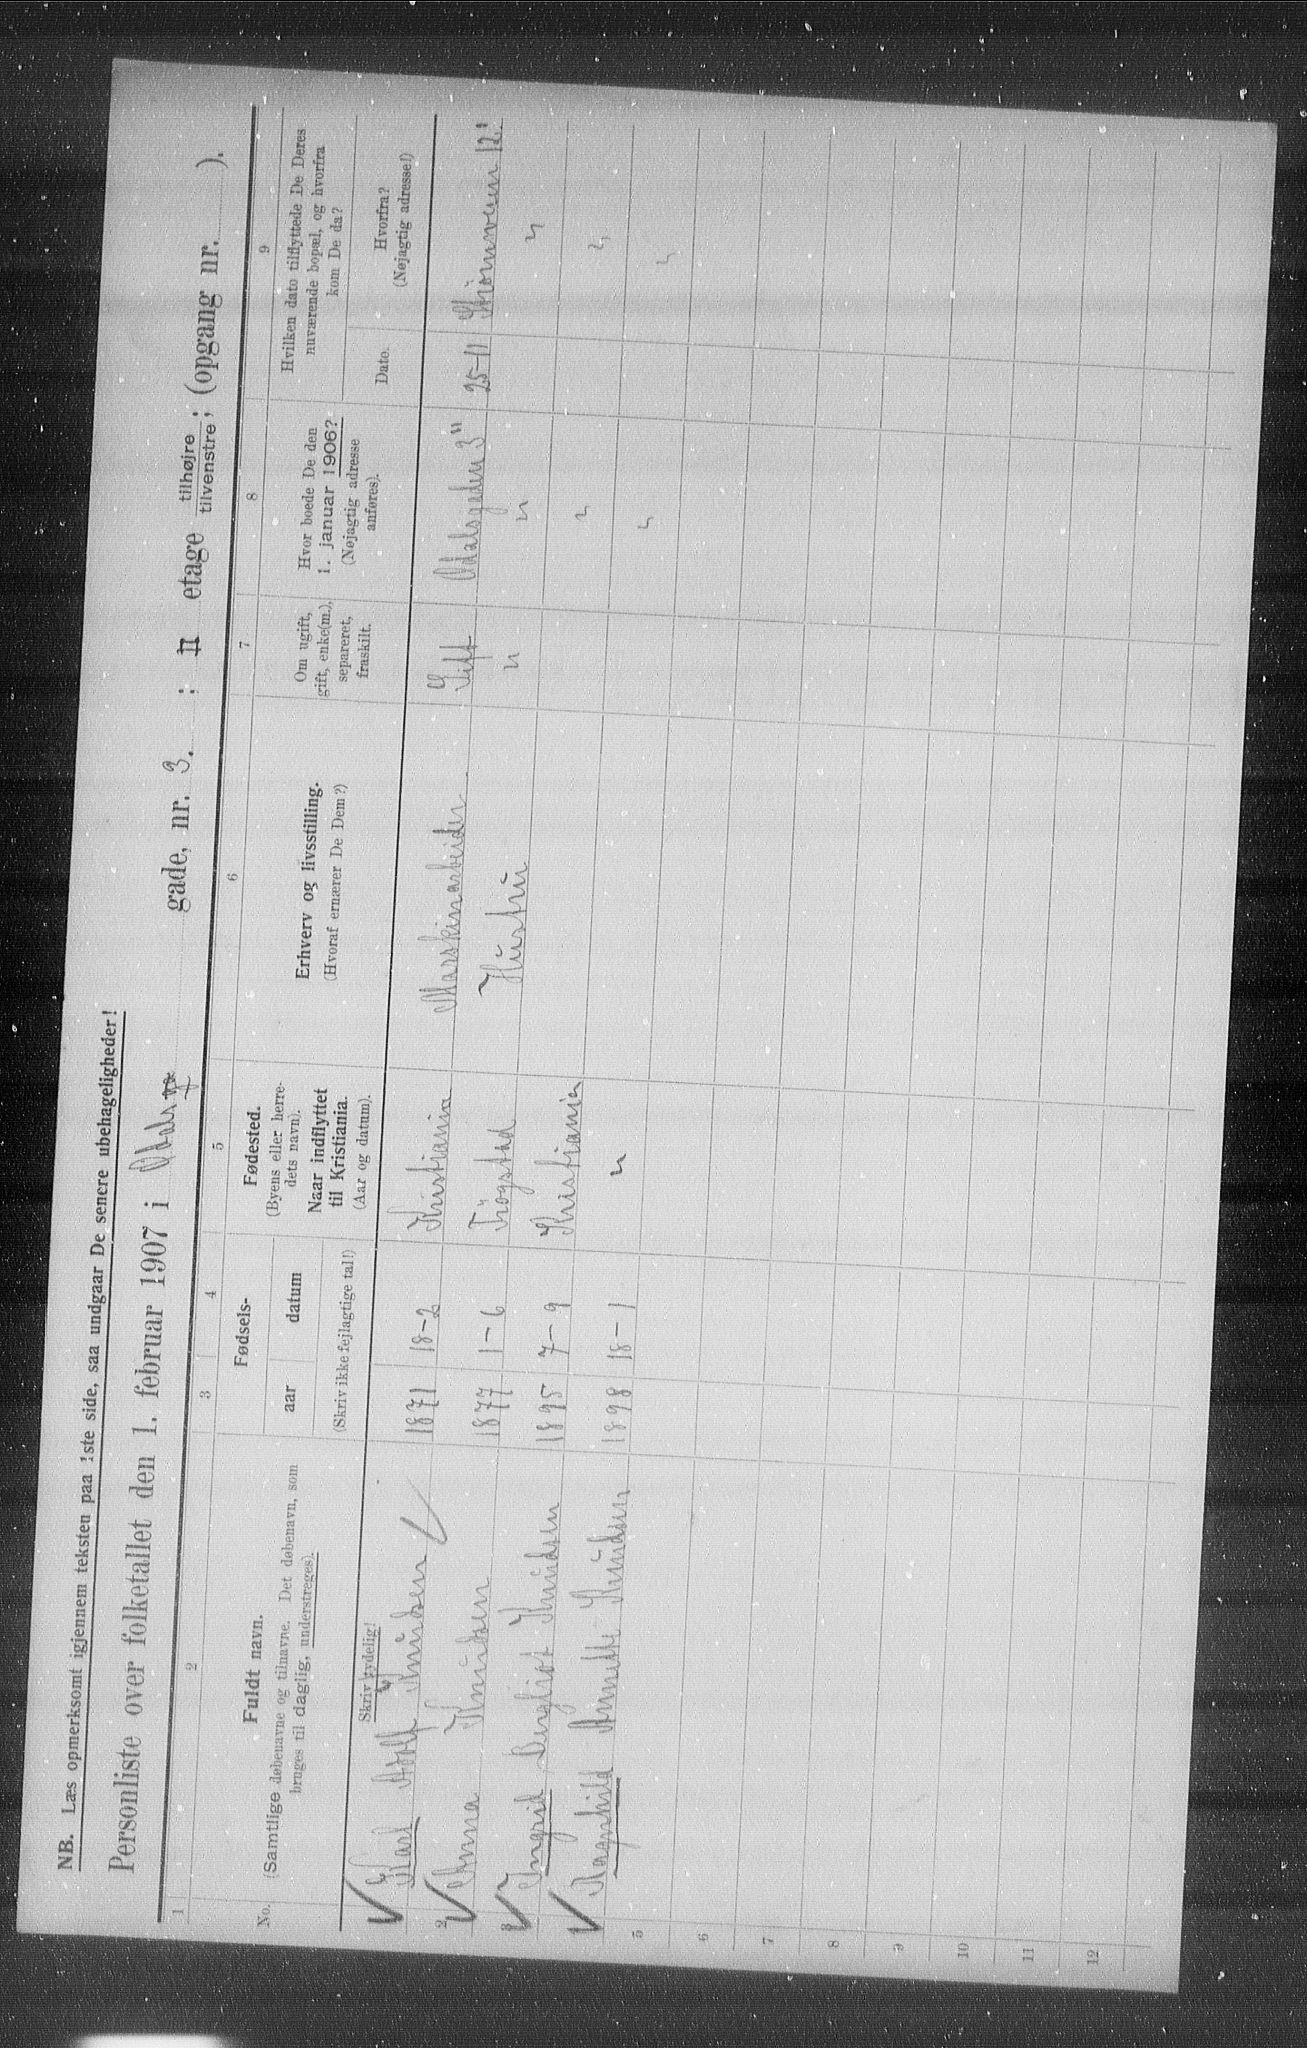 NB. Læs opmerksomt igjennem teksten paa 1ste side, saa undgaar De senere ubehageligheder!
Personliste over folketallet den 1. februar 1907 i Odals gade, nr. 3. ; II etage tilhøjre tilvenstre; (opgang nr. ).
1 2 3 4 5 6 7 8 9
No.
Fuldt navn.
(Samtlige døbenavne og tilnavne. Det døbenavn, som
bruges til daglig, understreges).
Fødsels-
aar datum
(Skriv ikke fejlagtige tal!)
Fødested.
(Byens eller herre-
dets navn).
Naar indflyttet
til Kristiania.
(Aar og datum).
Erhverv og livsstilling.
(Hvoraf ernærer De Dem?)
Om ugift,
gift, enke(m.),
separeret,
fraskilt.
Hvor boede De den
1. januar 1906?
(Nøjagtig adresse
anføres).
Hvilken dato tilflyttede De Deres
nuværende bopæl, og hvorfra
kom De da?
Dato.
Hvorfra?
(Nøjagtig adresse!)
Skriv tydelig!
Karl Adolf Knudsen 1871 18-2 Kristiania Maskinarbeider Gift Odalsgaden 3 II 25-11
2 Anna Knudsen 1877 1-6 Trøgstad Hustru " " "
3 Ingrid Bergliot Knudsen 1895 7-9 Kristiania " "
Ragnhild Annette Knudsen 1898 18-1 " " "
5
6
7
8
9
10
11
12